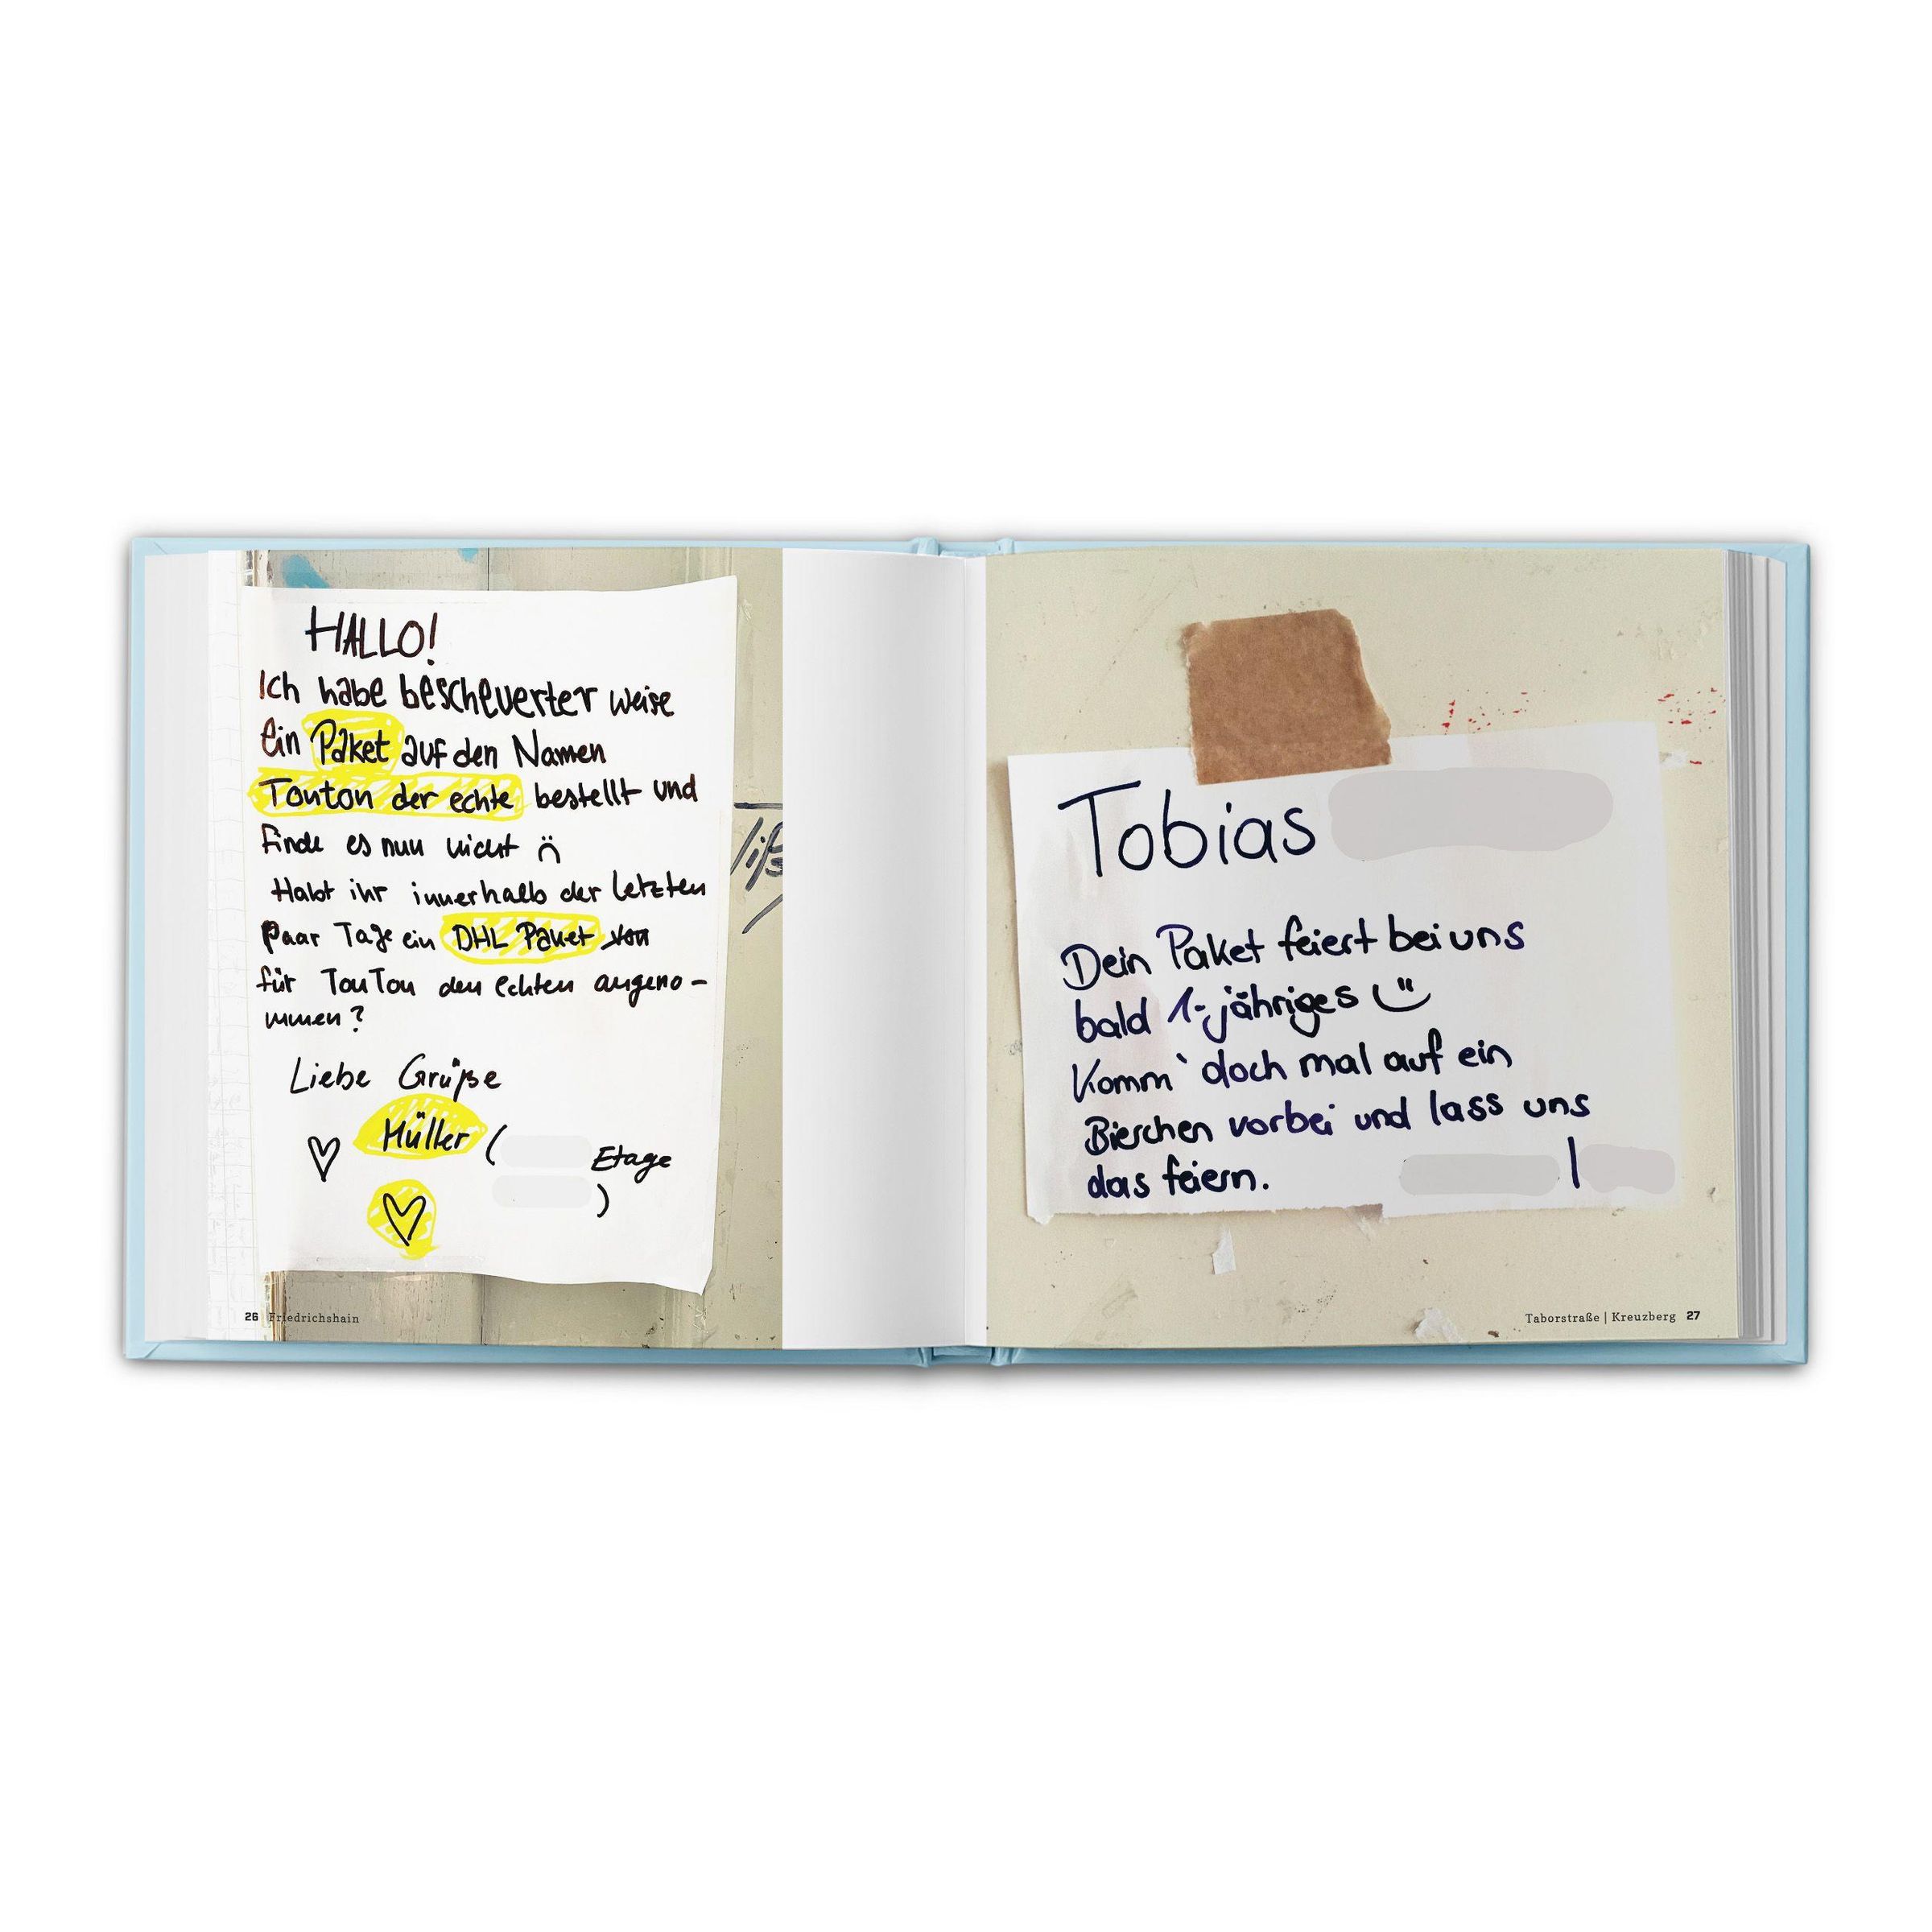 HALLO!
Ich habe bescheuerter weise
ein Paket auf den Namen
Touton der echte bestellt und
finde es nun nicht :(
Habt ihr innerhalb der letzten
paar Tage ein DHL Paket von
für TouTou den echten angeno-
mmen?
Liebe Grüße
♡ Müller ( Etage
♡ )
26 | Friedrichshain
Tobias
Dein Paket feiert bei uns
bald 1-jähriges :)
Komm` doch mal auf ein
Bierchen vorbei und lass uns
das feiern. |
Taborstraße | Kreuzberg 27